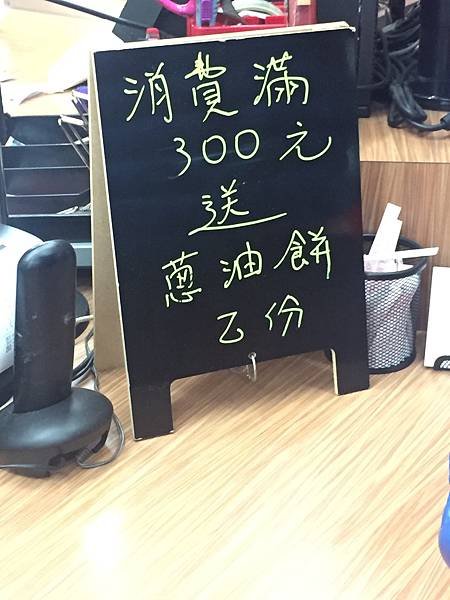 消費滿
300元
送
蔥油餅
乙份